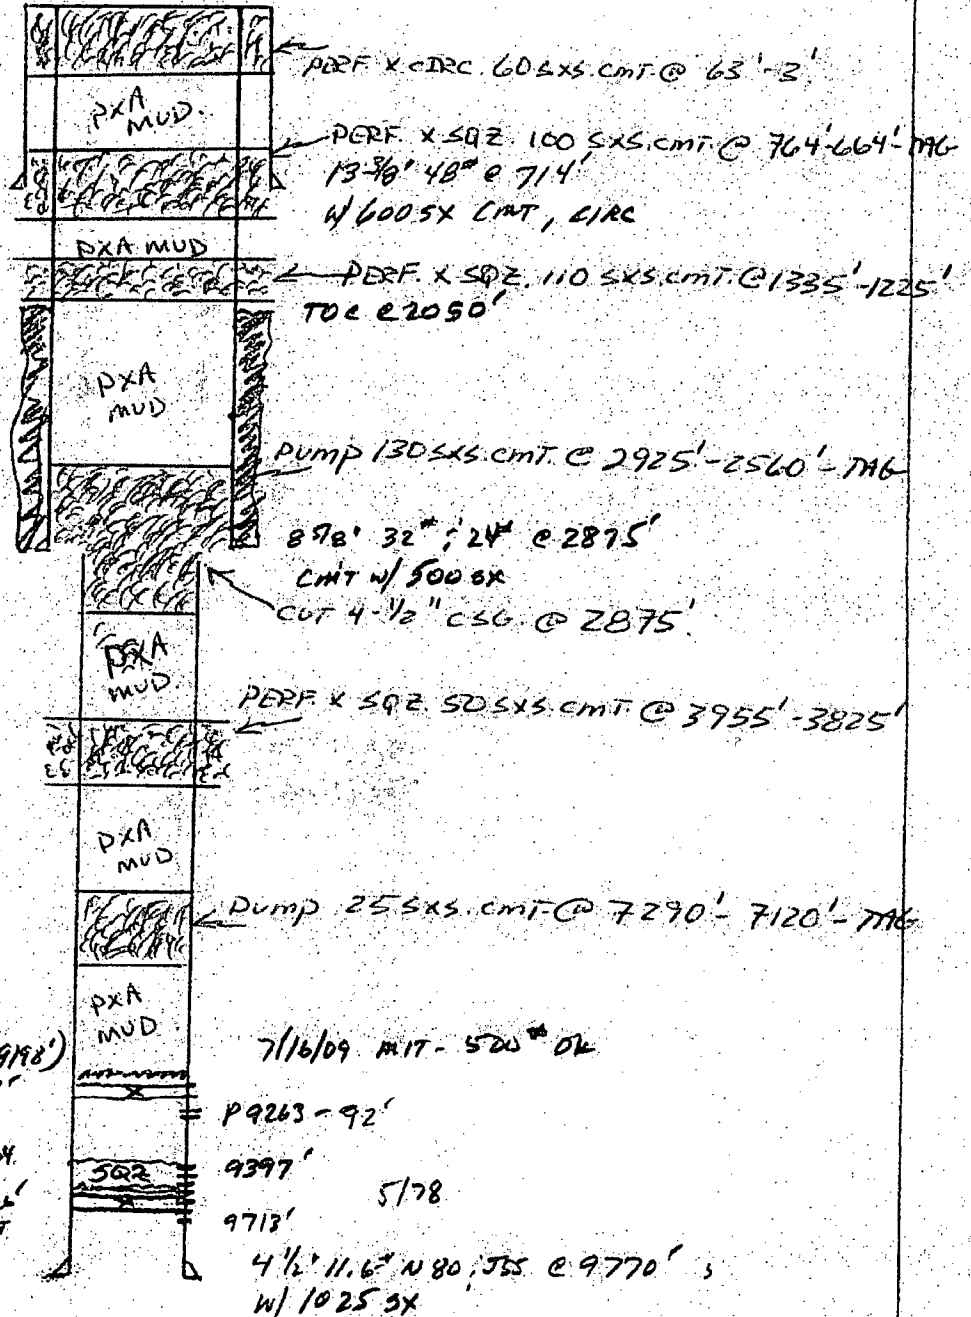 PERF. X CIRC. 60 SXS. CMT. @ 63'-3'.
PXA
MUD.
PERF. X SQZ. 100 SXS. CMT. @ 764'-664'-TAG
13 3/8" 48# @ 714'
W/ 600 SX CMT, CIRC
PXA MUD
PERF. X SQZ. 110 SXS. CMT. @ 1335'-1225'
TOC @ 2050'
PXA
MUD
PUMP 130 SXS. CMT. @ 2925'-2560'-TAG
8 5/8" 32#; 24# @ 2875'
CMT W/ 500 SX
CUT 4-1/2" CSG. @ 2875'.
PXA
MUD.
PERF. X SQZ. 50 SXS. CMT. @ 3955'-3825'
PXA
MUD
PUMP 25 SXS. CMT. @ 7290'-7120'-TAG
PXA
MUD
9198')
7/16/09 MIT - 500# OK
P 9263 - 92'
SQZ
9397'
5/78
9713'
4 1/2" 11.6# N80, J55 @ 9770'
W/ 1025 SX